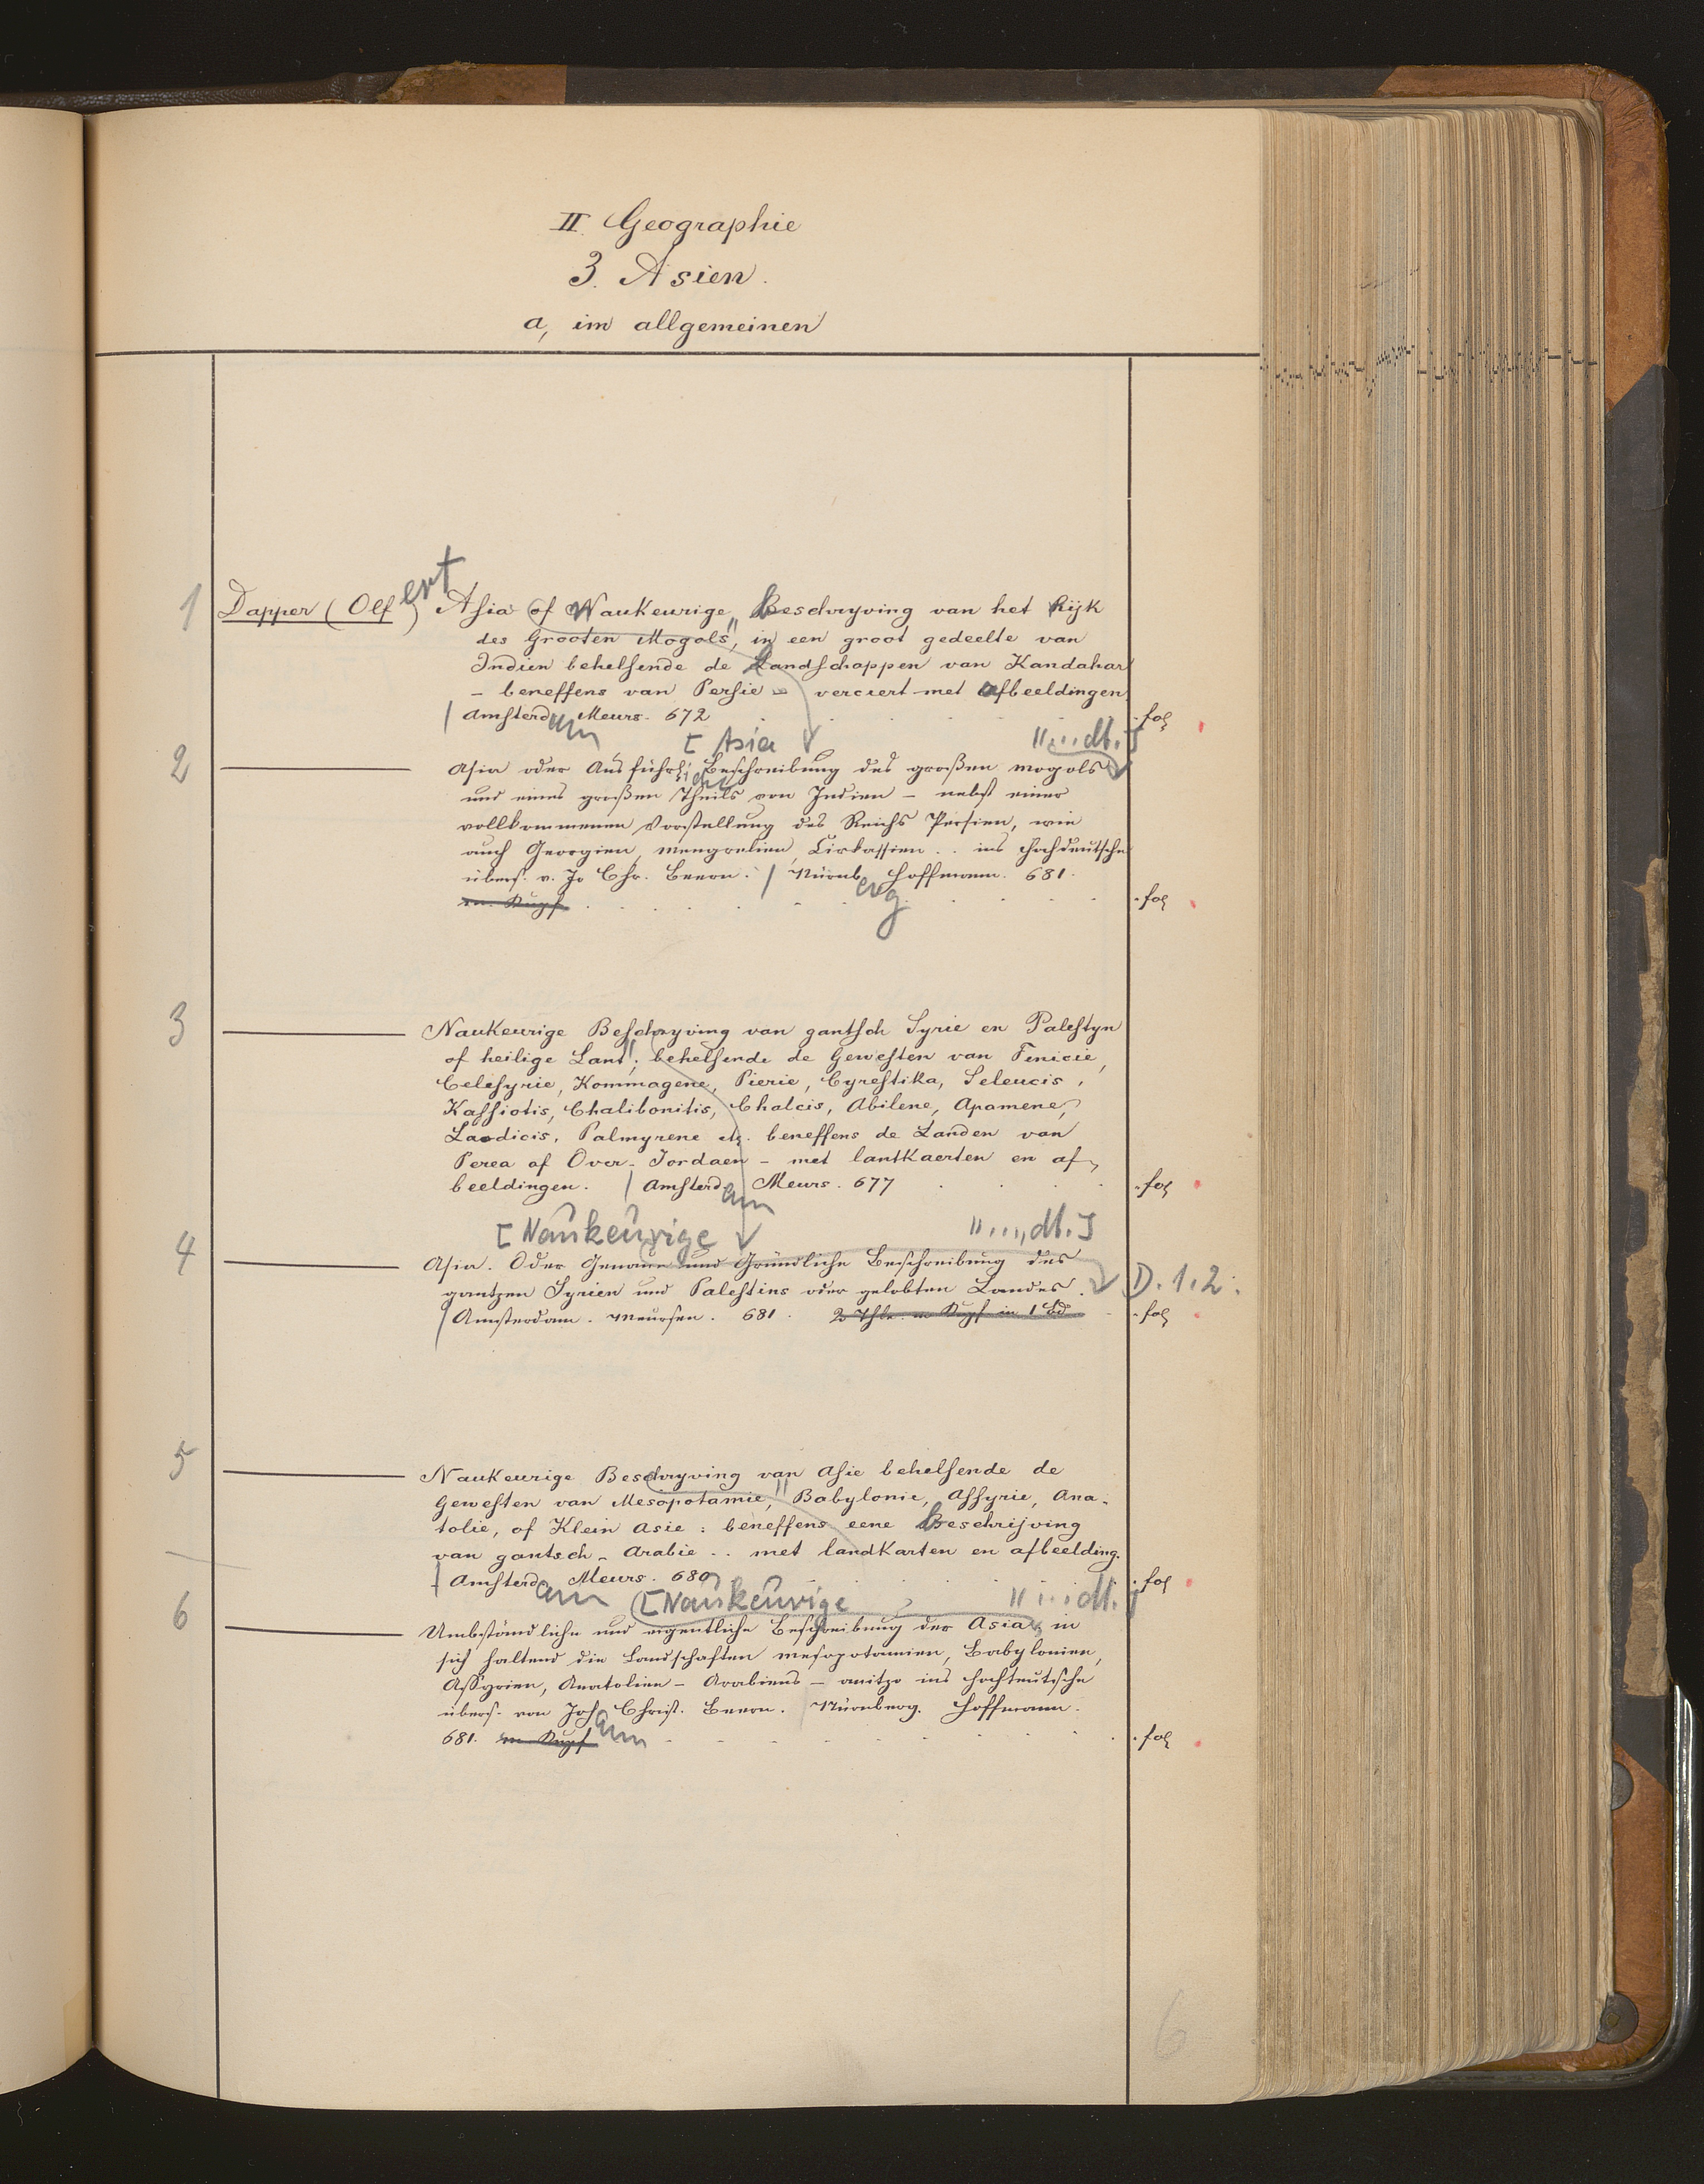 II. Geographie
3. Asien.
a, im allgemeinen
1 Dapper (Olfert) Asia of Naukeurige Beschryving van het Rijk
des Grooten Mogols", in een groot gedeelte van
Indien behelsende de Landschappen van Kandahar
– beneffens van Persie – verciert met afbeeldingen
| Amsterdam Meurs. 672 . fol
[Asia "...dt.]
2 Asia oder Ausführliche Beschreibung des großen Mogols
und eines großen Theils von Indien – nebst einer
vollkommenen Vorstellung des Reichs Persien, wie
auch Georgien, Mengrelien, Cirkassien .. ins Hochdeutsche
übers. v. Jo Chr. Beern. | Nürnberg Hoffmann. 681.
m. Kupf . fol
3 Naukeurige Beschryving van gantsch Syrie en Palestyn
of heilige Lant"; behelsende de Gewesten van Fenicie,
Celesyrie, Kommagene, Pierie, Cyrestika, Seleucis,
Kassiotis, Chalibonitis, Chalcis, Abilene, Apamene,
Laodicis, Palmyrene etc. beneffens de Landen van
Perea of Over-Jordaen – met lantkaerten en af-
beeldingen. | Amsterdam Meurs. 677 . fol
[Naukeurige "...dt.]
4 Asia. Oder Genaue und Gründliche Beschreibung des
gantzen Syrien und Palestins oder gelobten Landes. D. 1.2.
| Amsterdam. Meursen. 681. 2 Thle m Kupf in 1 Bd . fol
5 Naukeurige Beschryving van Asie behelsende de
Gewesten van Mesopotamie", Babylonie, Assyrie, Ana-
tolie, of Klein Asie: beneffens eene Beschrijving
van gantsch – Arabie .. met landKarten en afbeelding.
| Amsterdam Meurs. 680 . fol
[Naukeurige "...dt.]
6 Umbständliche und eigentliche Beschreibung der Asia in
sich haltend die Landschaften Mesopotamien, Babylonien,
Assyrien, Anatolien – Arabiens – anitzo ins Hochteutsche
übers. von Joh Christ. Beern. Nürnberg. Hoffmann.
681. m Kupf . fol
6